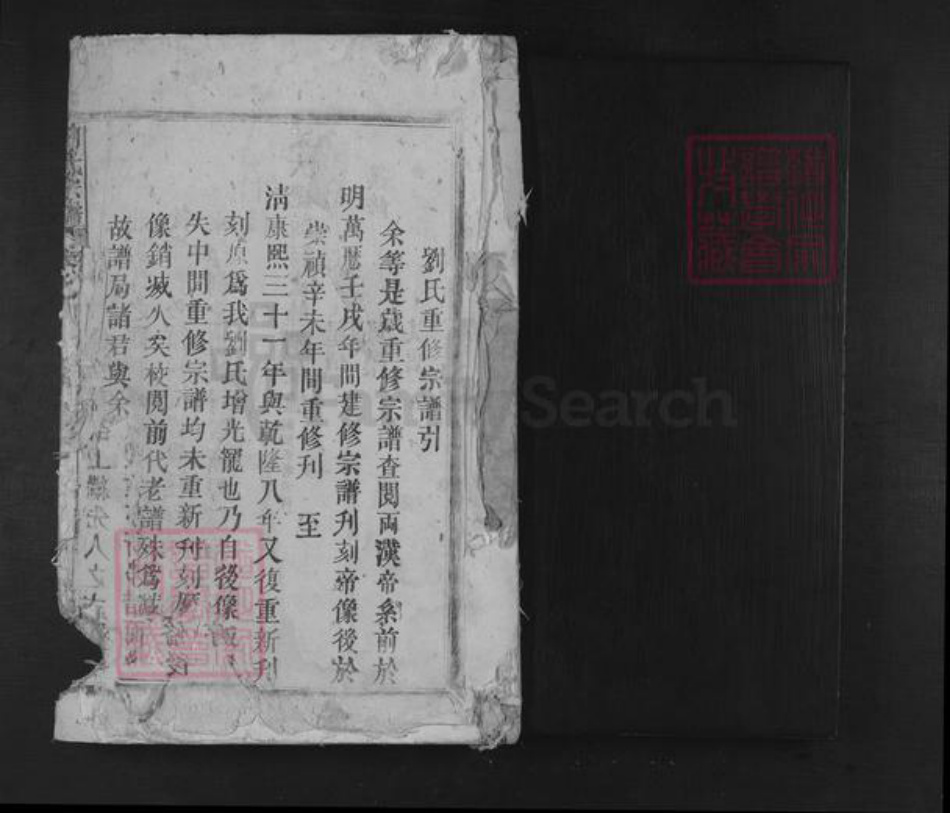 劉氏重修宗譜引
余等是歲重修宗譜查閱兩漢帝系前於
明萬曆壬戌年間建修宗譜刋刻帝像後於
崇禎辛未年間重修刋 至
清康熙三十一年與乾隆八年又復重新刋
刻原爲我劉氏增光寵也乃自後像
失中間重修宗譜均未重新刋刻
像銷滅久矣校閱前代老譜殊爲
故譜局諸君與余
上繼先人之
Search